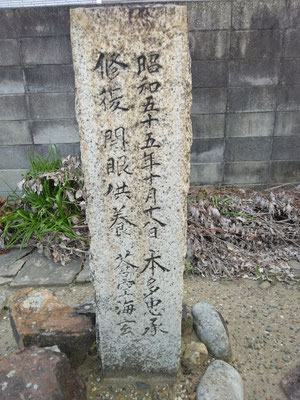 昭和五十五年十月十八日 本多忠承
修復 開眼供養 海玄